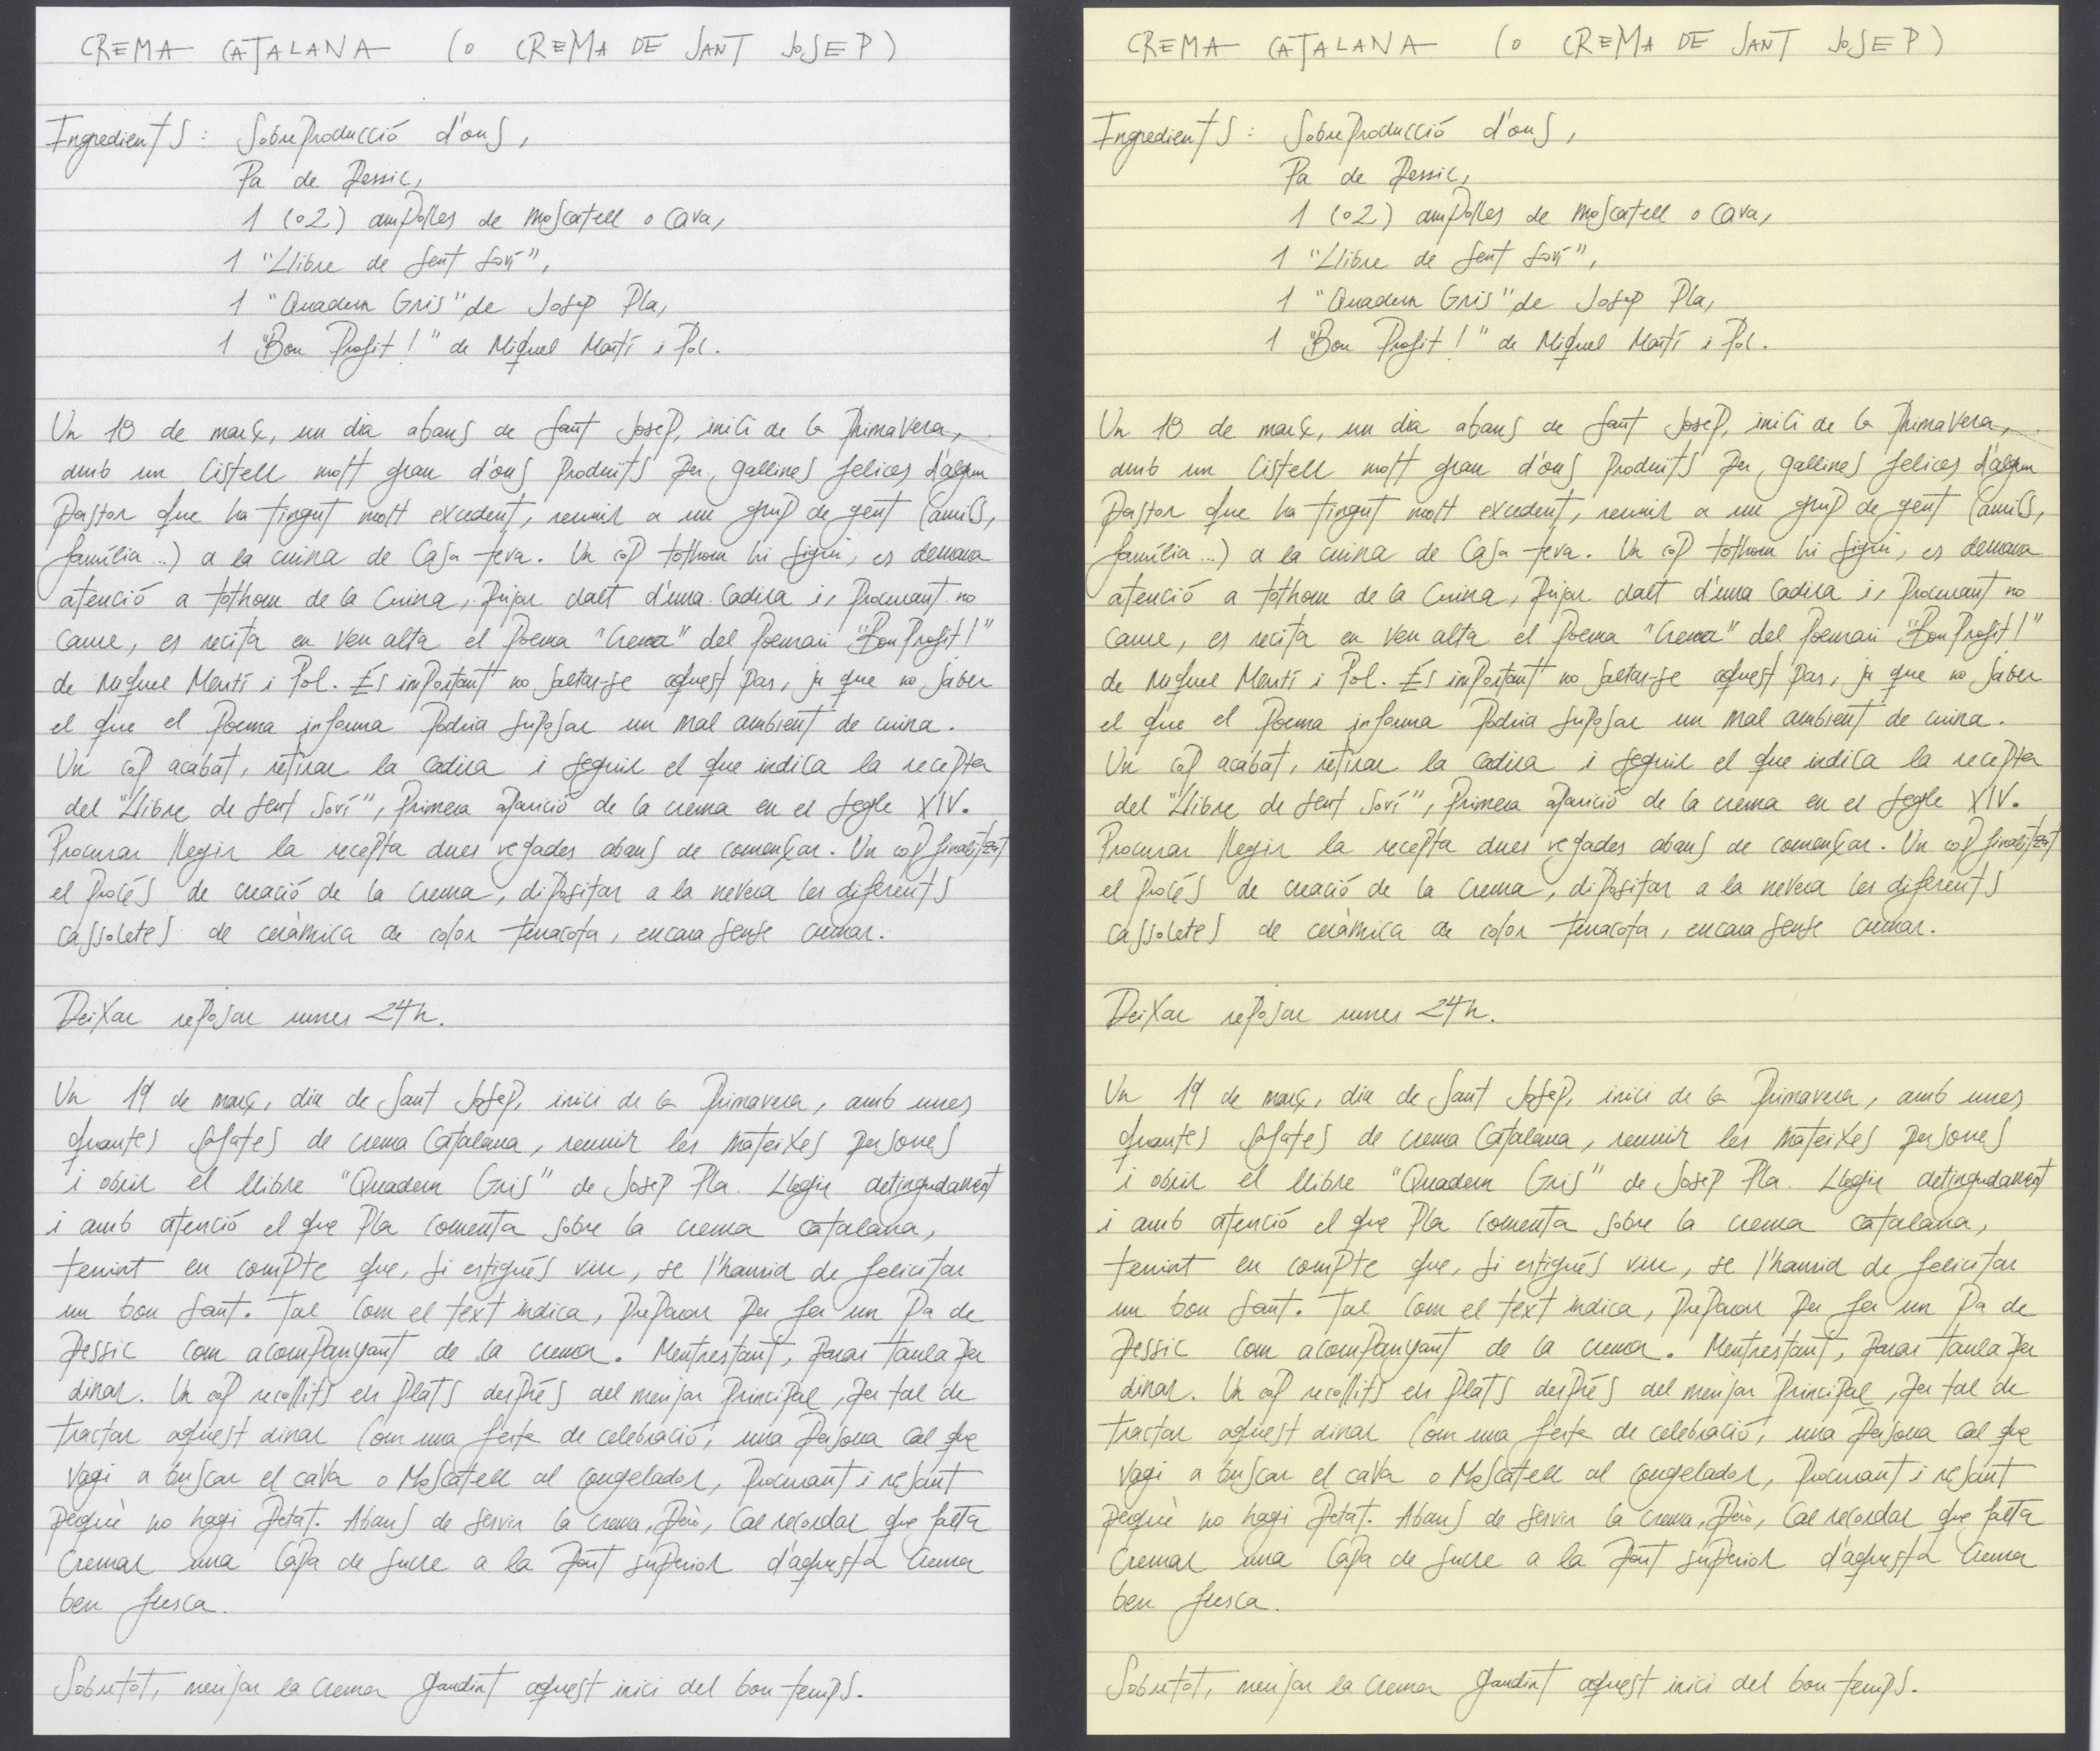 CREMA CATALANA (O CREMA DE SANT JOSEP)
Ingredients: Sobreproducció d'ous,
Pa de Pessic,
1 (o 2) ampolles de moscatell o cava,
1 "Llibre de Sent Soví",
1 "Quadern Gris" de Josep Pla,
1 "Bon Profit!" de Miquel Martí i Pol.
Un 18 de març, un dia abans de Sant Josep, inici de la Primavera,
amb un cistell molt gran d'ous produïts per gallines felices d'algun
pastor que ha tingut molt excedent, reunir a un grup de gent (amics,
família...) a la cuina de casa teva. Un cop tothom hi sigui, es demana
atenció a tothom de la cuina, pujar dalt d'una cadira i, procurant no
caure, es recita en veu alta el poema "Crema" del poemari "Bon Profit!"
de Miquel Martí i Pol. És important no saltar-se aquest pas, ja que no saber
el que el poema informa podria suposar un mal ambient de cuina.
Un cop acabat, retirar la cadira i seguir el que indica la recepta
del "Llibre de Sent Soví", primera aparició de la crema en el segle XIV.
Procurar llegir la recepta dues vegades abans de començar. Un cop finalitzat
el procés de creació de la crema, dipositar a la nevera les diferents
cassoletes de ceràmica de color terracota, encara sense cremar.
Deixar reposar unes 24h.
Un 19 de març, dia de Sant Josep, inici de la Primavera, amb unes
quantes safates de crema catalana, reunir les mateixes persones
i obrir el llibre "Quadern Gris" de Josep Pla. Llegir detingudament
i amb atenció el que Pla comenta sobre la crema catalana,
tenint en compte que, si estigués viu, se l'hauria de felicitar
un bon Sant. Tal com el text indica, preparar per fer un Pa de
Pessic com acompanyant de la crema. Mentrestant, parar taula per
dinar. Un cop recollits els plats després del menjar principal, per tal de
tractar aquest dinar com una festa de celebració, una persona cal que
vagi a buscar el cava o Moscatell al congelador, procurant i resant
perquè no hagi petat. Abans de servir la crema, però, cal recordar que falta
cremar una capa de sucre a la part superior d'aquesta crema
ben fresca.
Sobretot, menjar la crema gaudint aquest inici del bon temps.
CREMA CATALANA (O CREMA DE SANT JOSEP)
Ingredients: Sobreproducció d'ous,
Pa de Pessic,
1 (o 2) ampolles de moscatell o cava,
1 "Llibre de Sent Soví",
1 "Quadern Gris" de Josep Pla,
1 "Bon Profit!" de Miquel Martí i Pol.
Un 18 de març, un dia abans de Sant Josep, inici de la Primavera,
amb un cistell molt gran d'ous produïts per gallines felices d'algun
pastor que ha tingut molt excedent, reunir a un grup de gent (amics,
família...) a la cuina de casa teva. Un cop tothom hi sigui, es demana
atenció a tothom de la cuina, pujar dalt d'una cadira i, procurant no
caure, es recita en veu alta el poema "Crema" del poemari "Bon Profit!"
de Miquel Martí i Pol. És important no saltar-se aquest pas, ja que no saber
el que el poema informa podria suposar un mal ambient de cuina.
Un cop acabat, retirar la cadira i seguir el que indica la recepta
del "Llibre de Sent Soví", primera aparició de la crema en el segle XIV.
Procurar llegir la recepta dues vegades abans de començar. Un cop finalitzat
el procés de creació de la crema, dipositar a la nevera les diferents
cassoletes de ceràmica de color terracota, encara sense cremar.
Deixar reposar unes 24h.
Un 19 de març, dia de Sant Josep, inici de la Primavera, amb unes
quantes safates de crema catalana, reunir les mateixes persones
i obrir el llibre "Quadern Gris" de Josep Pla. Llegir detingudament
i amb atenció el que Pla comenta sobre la crema catalana,
tenint en compte que, si estigués viu, se l'hauria de felicitar
un bon Sant. Tal com el text indica, preparar per fer un Pa de
Pessic com acompanyant de la crema. Mentrestant, parar taula per
dinar. Un cop recollits els plats després del menjar principal, per tal de
tractar aquest dinar com una festa de celebració, una persona cal que
vagi a buscar el cava o Moscatell al congelador, procurant i resant
perquè no hagi petat. Abans de servir la crema, però, cal recordar que falta
cremar una capa de sucre a la part superior d'aquesta crema
ben fresca.
Sobretot, menjar la crema gaudint aquest inici del bon temps.